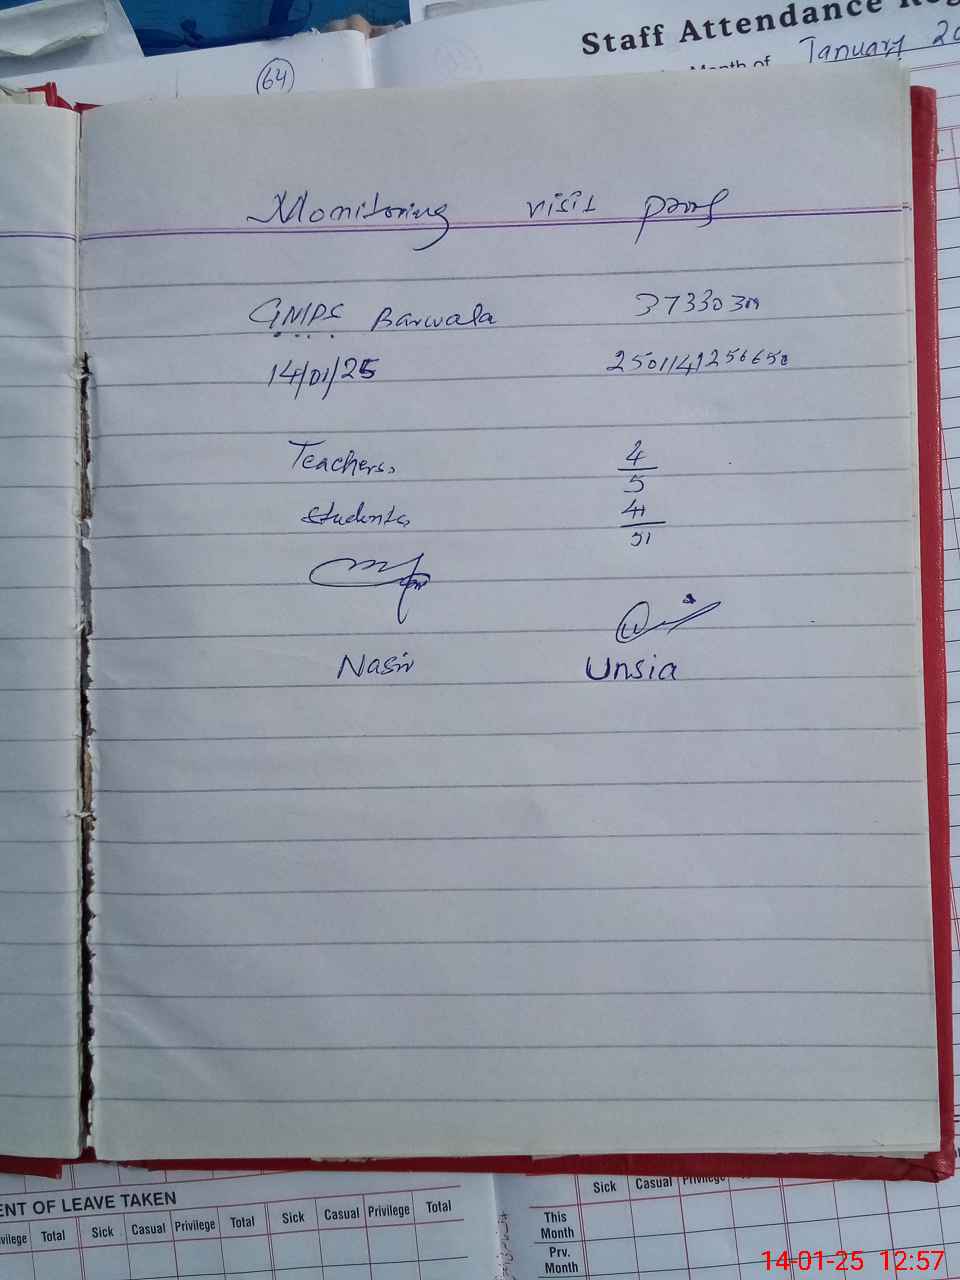 Staff Attendance Reg
Month of January 20
64
Monitoring visit proof
GMPS Barwala 37330301
14/01/25 250114125665
Teachers. 4/5
Students. 41/51
Nasir Unsia
ENT OF LEAVE TAKEN
vilege Total Sick Casual Privilege Total Sick Casual Privilege Total
Sick Casual Privilege
This Month
Prv. Month
14-01-25 12:57